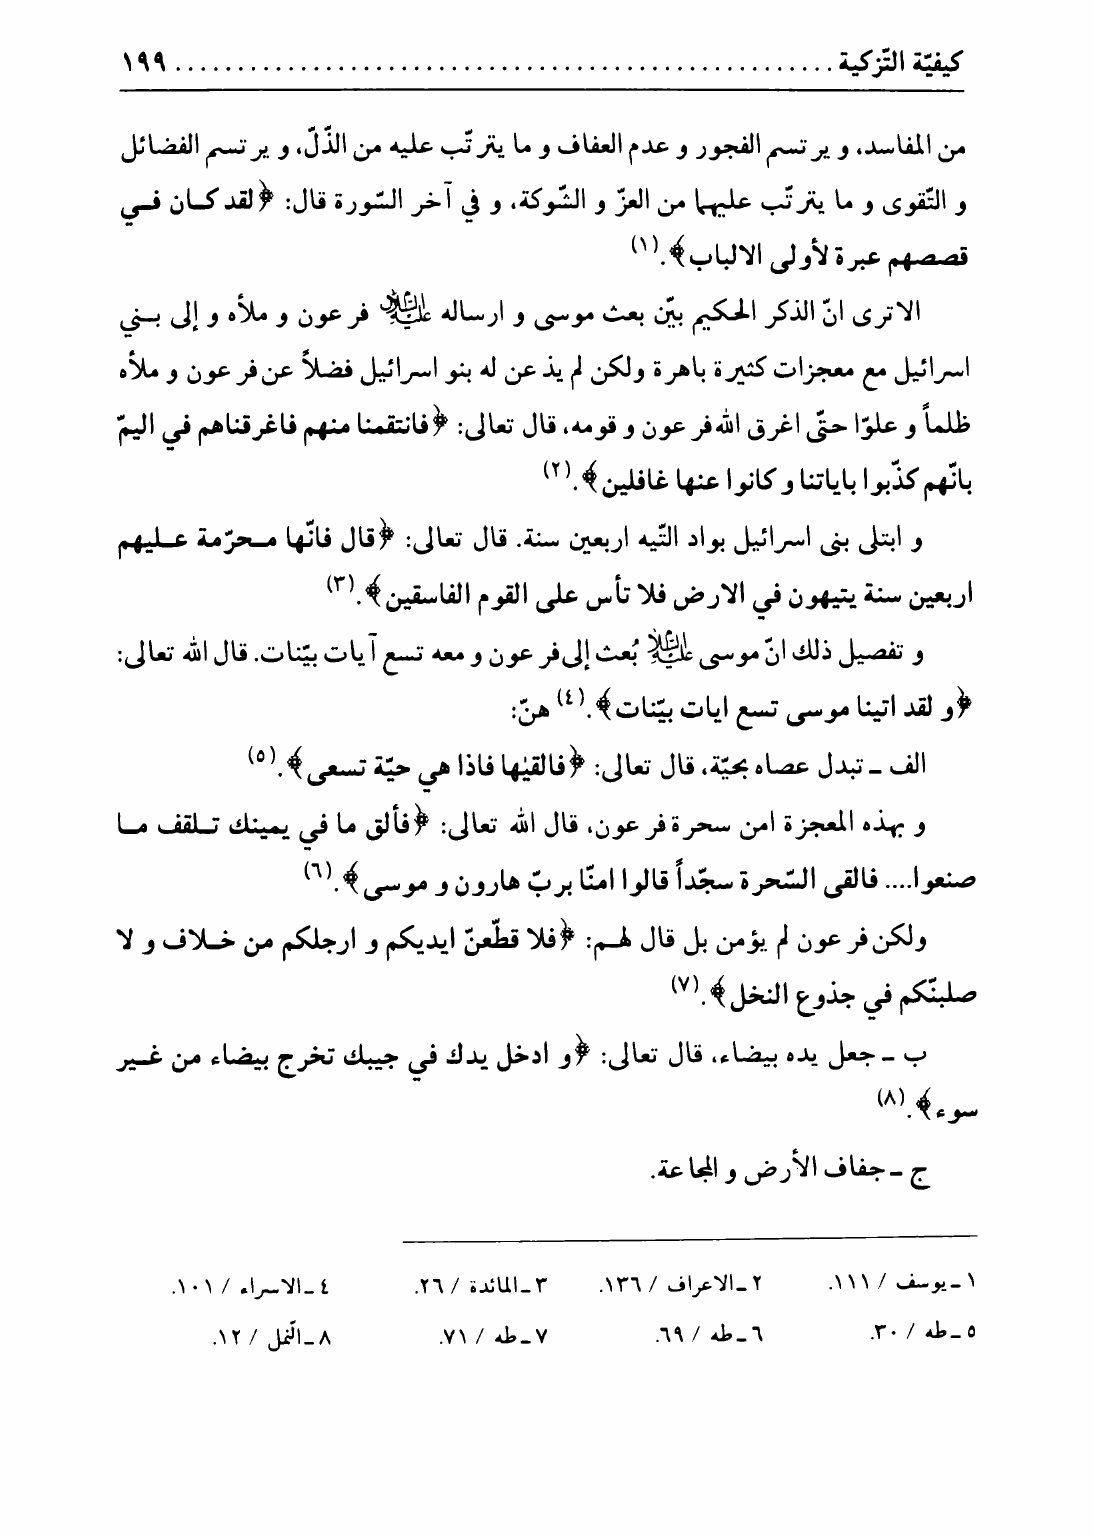 كيفيّة التّزكية ..................................................... ١٩٩
من المفاسد، و يرتسم الفجور و عدم العفاف و ما يترتّب عليه من الذّلّ، و يرتسم الفضائل
و التّقوى و ما يترتّب عليها من العزّ و الشّوكة، و في آخر السّورة قال: ﴿لقد كان في
قصصهم عبرة لأولى الالباب﴾.(١)
الاترى انّ الذكر الحكيم بيّن بعث موسى و ارساله عليه السلام فرعون و ملأه و إلى بني
اسرائيل مع معجزات كثيرة باهرة ولكن لم يذعن له بنو اسرائيل فضلاً عن فرعون و ملأه
ظلماً و علوّا حتّى اغرق الله فرعون و قومه، قال تعالى: ﴿فانتقمنا منهم فاغرقناهم في اليمّ
بانّهم كذّبوا باياتنا و كانوا عنها غافلين﴾.(٢)
و ابتلى بنى اسرائيل بواد التّيه اربعين سنة. قال تعالى: ﴿قال فانّها محرّمة عليهم
اربعين سنة يتيهون في الارض فلا تأس على القوم الفاسقين﴾.(٣)
و تفصيل ذلك انّ موسى عليه السلام بُعث إلى فرعون و معه تسع آيات بيّنات. قال الله تعالى:
﴿و لقد اتينا موسى تسع ايات بيّنات﴾.(٤) هنّ:
الف ـ تبدل عصاه بحيّة، قال تعالى: ﴿فالقيٰها فاذا هي حيّة تسعى﴾.(٥)
و بهذه المعجزة امن سحرة فرعون، قال الله تعالى: ﴿فألق ما في يمينك تلقف ما
صنعوا.... فالقى السّحرة سجّداً قالوا امنّا بربّ هارون و موسى﴾.(٦)
ولكن فرعون لم يؤمن بل قال لهم: ﴿فلا قطّعنّ ايديكم و ارجلكم من خلاف و لا
صلبنّكم في جذوع النخل﴾.(٧)
ب ـ جعل يده بيضاء، قال تعالى: ﴿و ادخل يدك في جيبك تخرج بيضاء من غير
سوء﴾.(٨)
ج ـ جفاف الأرض و المجاعة.
١ ـ يوسف / ١١١. ٢ ـ الاعراف / ١٣٦. ٣ ـ المائدة / ٢٦. ٤ ـ الاسراء / ١٠١.
٥ ـ طه / ٣٠. ٦ ـ طه / ٦٩. ٧ ـ طه / ٧١. ٨ ـ النّمل / ١٢.